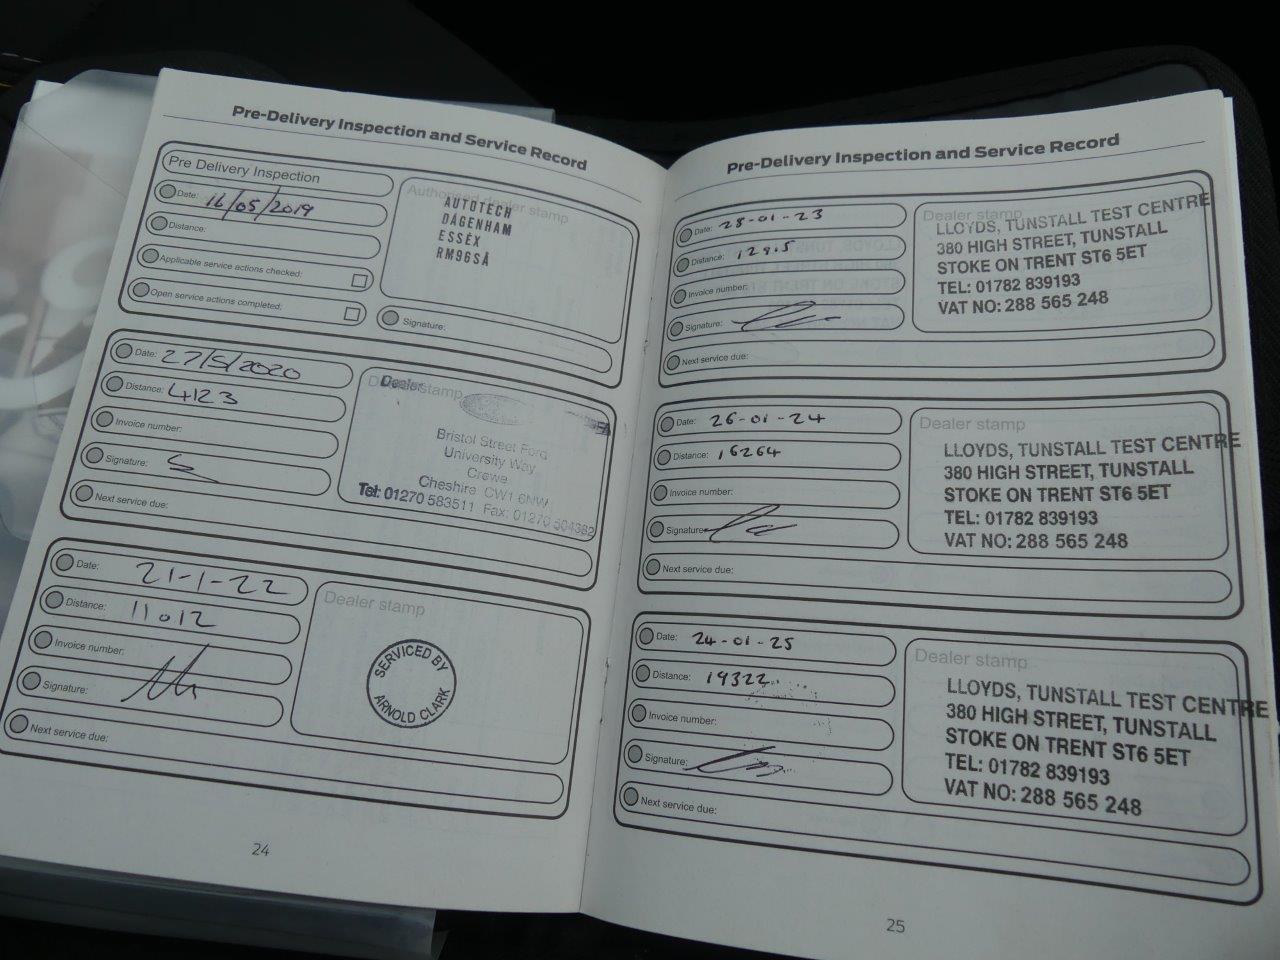 Pre-Delivery Inspection and Service Record
Pre Delivery Inspection
Date: 16/05/2019
Distance:
Applicable service actions checked:
Open service actions completed:
Authorised dealer stamp
AUTOTECH
DAGENHAM
ESSEX
RM96SA
Signature:
Date: 27/5/2020
Distance: 4123
Invoice number:
Signature:
Next service due:
Dealer stamp
Dealer
Bristol Street Ford
University Way
Crewe
Cheshire CW1 6NW
Tel: 01270 583511 Fax: 01270 504382
Date: 21-1-22
Distance: 11012
Invoice number:
Signature:
Next service due:
Dealer stamp
SERVICED BY
ARNOLD CLARK
24
Pre-Delivery Inspection and Service Record
Date: 28-01-23
Distance: 12915
Invoice number:
Signature:
Next service due:
Dealer stamp
LLOYDS, TUNSTALL TEST CENTRE
380 HIGH STREET, TUNSTALL
STOKE ON TRENT ST6 5ET
TEL: 01782 839193
VAT NO: 288 565 248
Date: 26-01-24
Distance: 16264
Invoice number:
Signature:
Next service due:
Dealer stamp
LLOYDS, TUNSTALL TEST CENTRE
380 HIGH STREET, TUNSTALL
STOKE ON TRENT ST6 5ET
TEL: 01782 839193
VAT NO: 288 565 248
Date: 24-01-25
Distance: 19322
Invoice number:
Signature:
Next service due:
Dealer stamp
LLOYDS, TUNSTALL TEST CENTRE
380 HIGH STREET, TUNSTALL
STOKE ON TRENT ST6 5ET
TEL: 01782 839193
VAT NO: 288 565 248
25